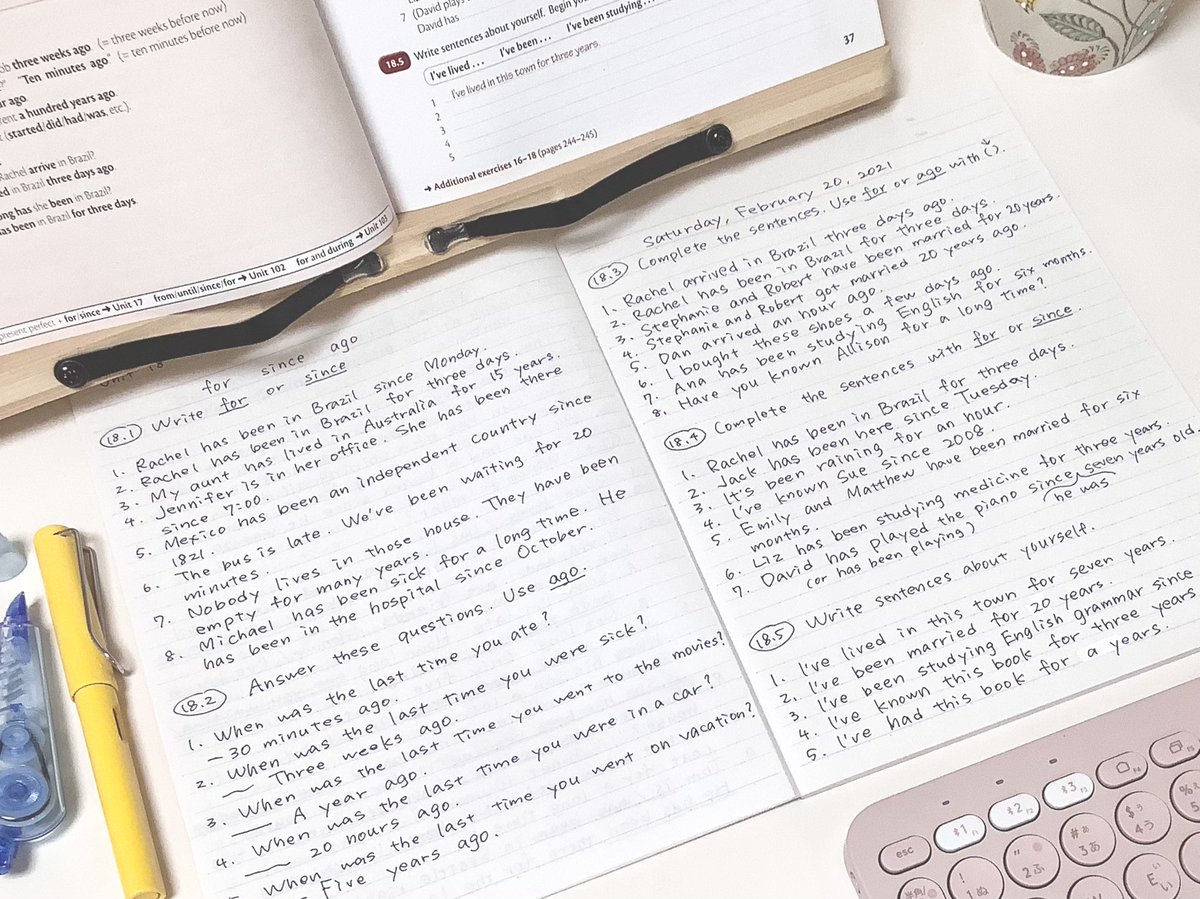 ob three weeks ago (= three weeks before now)
"Ten minutes ago" (= ten minutes before now)
ar ago.
rent a hundred years ago.
(started/did/had/was, etc.).
Rachel arrive in Brazil?
ed in Brazil three days ago.
ong has she been in Brazil?
as been in Brazil for three days.
present perfect + for/since → Unit 17 from/until/since/for → Unit 102 for and during → Unit 103
7 (David plays
David has
18.5 Write sentences about yourself. Begin you
I've lived ... I've been ... I've been studying ...
1 I've lived in this town for three years.
2
3
4
5
→ Additional exercises 16–18 (pages 244–245)
37
Unit 18
for since ago
18.1 Write for or since
1. Rachel has been in Brazil since Monday.
2. Rachel has been in Brazil for three days.
3. My aunt has lived in Australia for 15 years.
4. Jennifer is in her office. She has been there
since 7:00.
5. Mexico has been an independent country since
1821.
6. The bus is late. We've been waiting for 20
minutes.
7. Nobody lives in those house. They have been
empty for many years.
8. Michael has been sick for a long time. He
has been in the hospital since October.
18.2 Answer these questions. Use ago.
1. When was the last time you ate?
— 30 minutes ago.
2. When was the last time you were sick?
— Three weeks ago.
3. When was the last time you went to the movies?
— A year ago.
4. When was the last time you were in a car?
— 20 hours ago.
When was the last time you went on vacation?
Five years ago.
Saturday, February 20, 2021
18.3 Complete the sentences. Use for or ago with ( ).
1. Rachel arrived in Brazil three days ago.
2. Rachel has been in Brazil for three days.
3. Stephanie and Robert have been married for 20 years.
4. Stephanie and Robert got married 20 years ago.
5. Dan arrived an hour ago.
6. I bought these shoes a few days ago.
7. Ana has been studying English for six months.
8. Have you known Allison for a long time?
18.4 Complete the sentences with for or since.
1. Rachel has been in Brazil for three days.
2. Jack has been here since Tuesday.
3. It's been raining for an hour.
4. I've known Sue since 2008.
5. Emily and Matthew have been married for six
months.
6. Liz has been studying medicine for three years.
7. David has played the piano since seven years old.
(or has been playing) he was
18.5 Write sentences about yourself.
1. I've lived in this town for seven years.
2. I've been married for 20 years.
3. I've been studying English grammar since
4. I've known this book for three years
5. I've had this book for a years.
esc
1 F1
2 F2
3 F3
F4
! 1 ぬ
" 2 ふ
# あ 3 あ
$ う 4 う
% 5
半角/
W
E い い